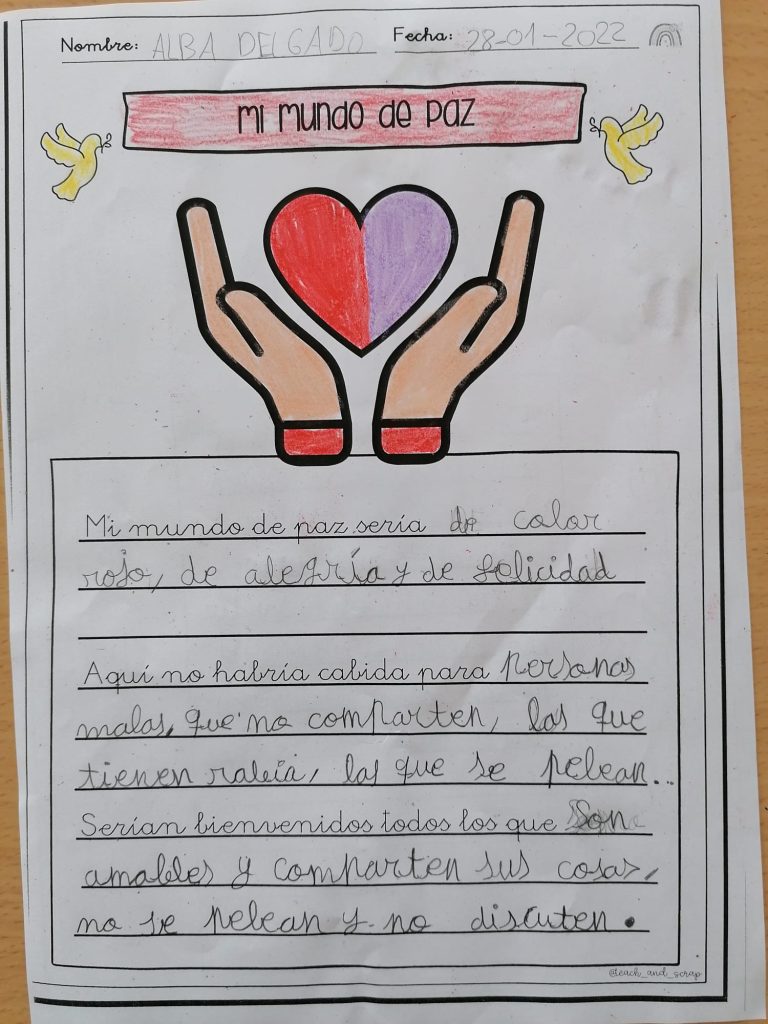 Nombre: ALBA DELGADO Fecha: 28-01-2022
Mi mundo de paz
Mi mundo de paz sería de color
rojo, de alegría y de felicidad
Aquí no habría cabida para personas
malas, que no comparten, las que
tienen rabia, las que se pelean...
Serían bienvenidos todos los que son
amables y comparten sus cosas,
no se pelean y no discuten.
@teach_and_scrap